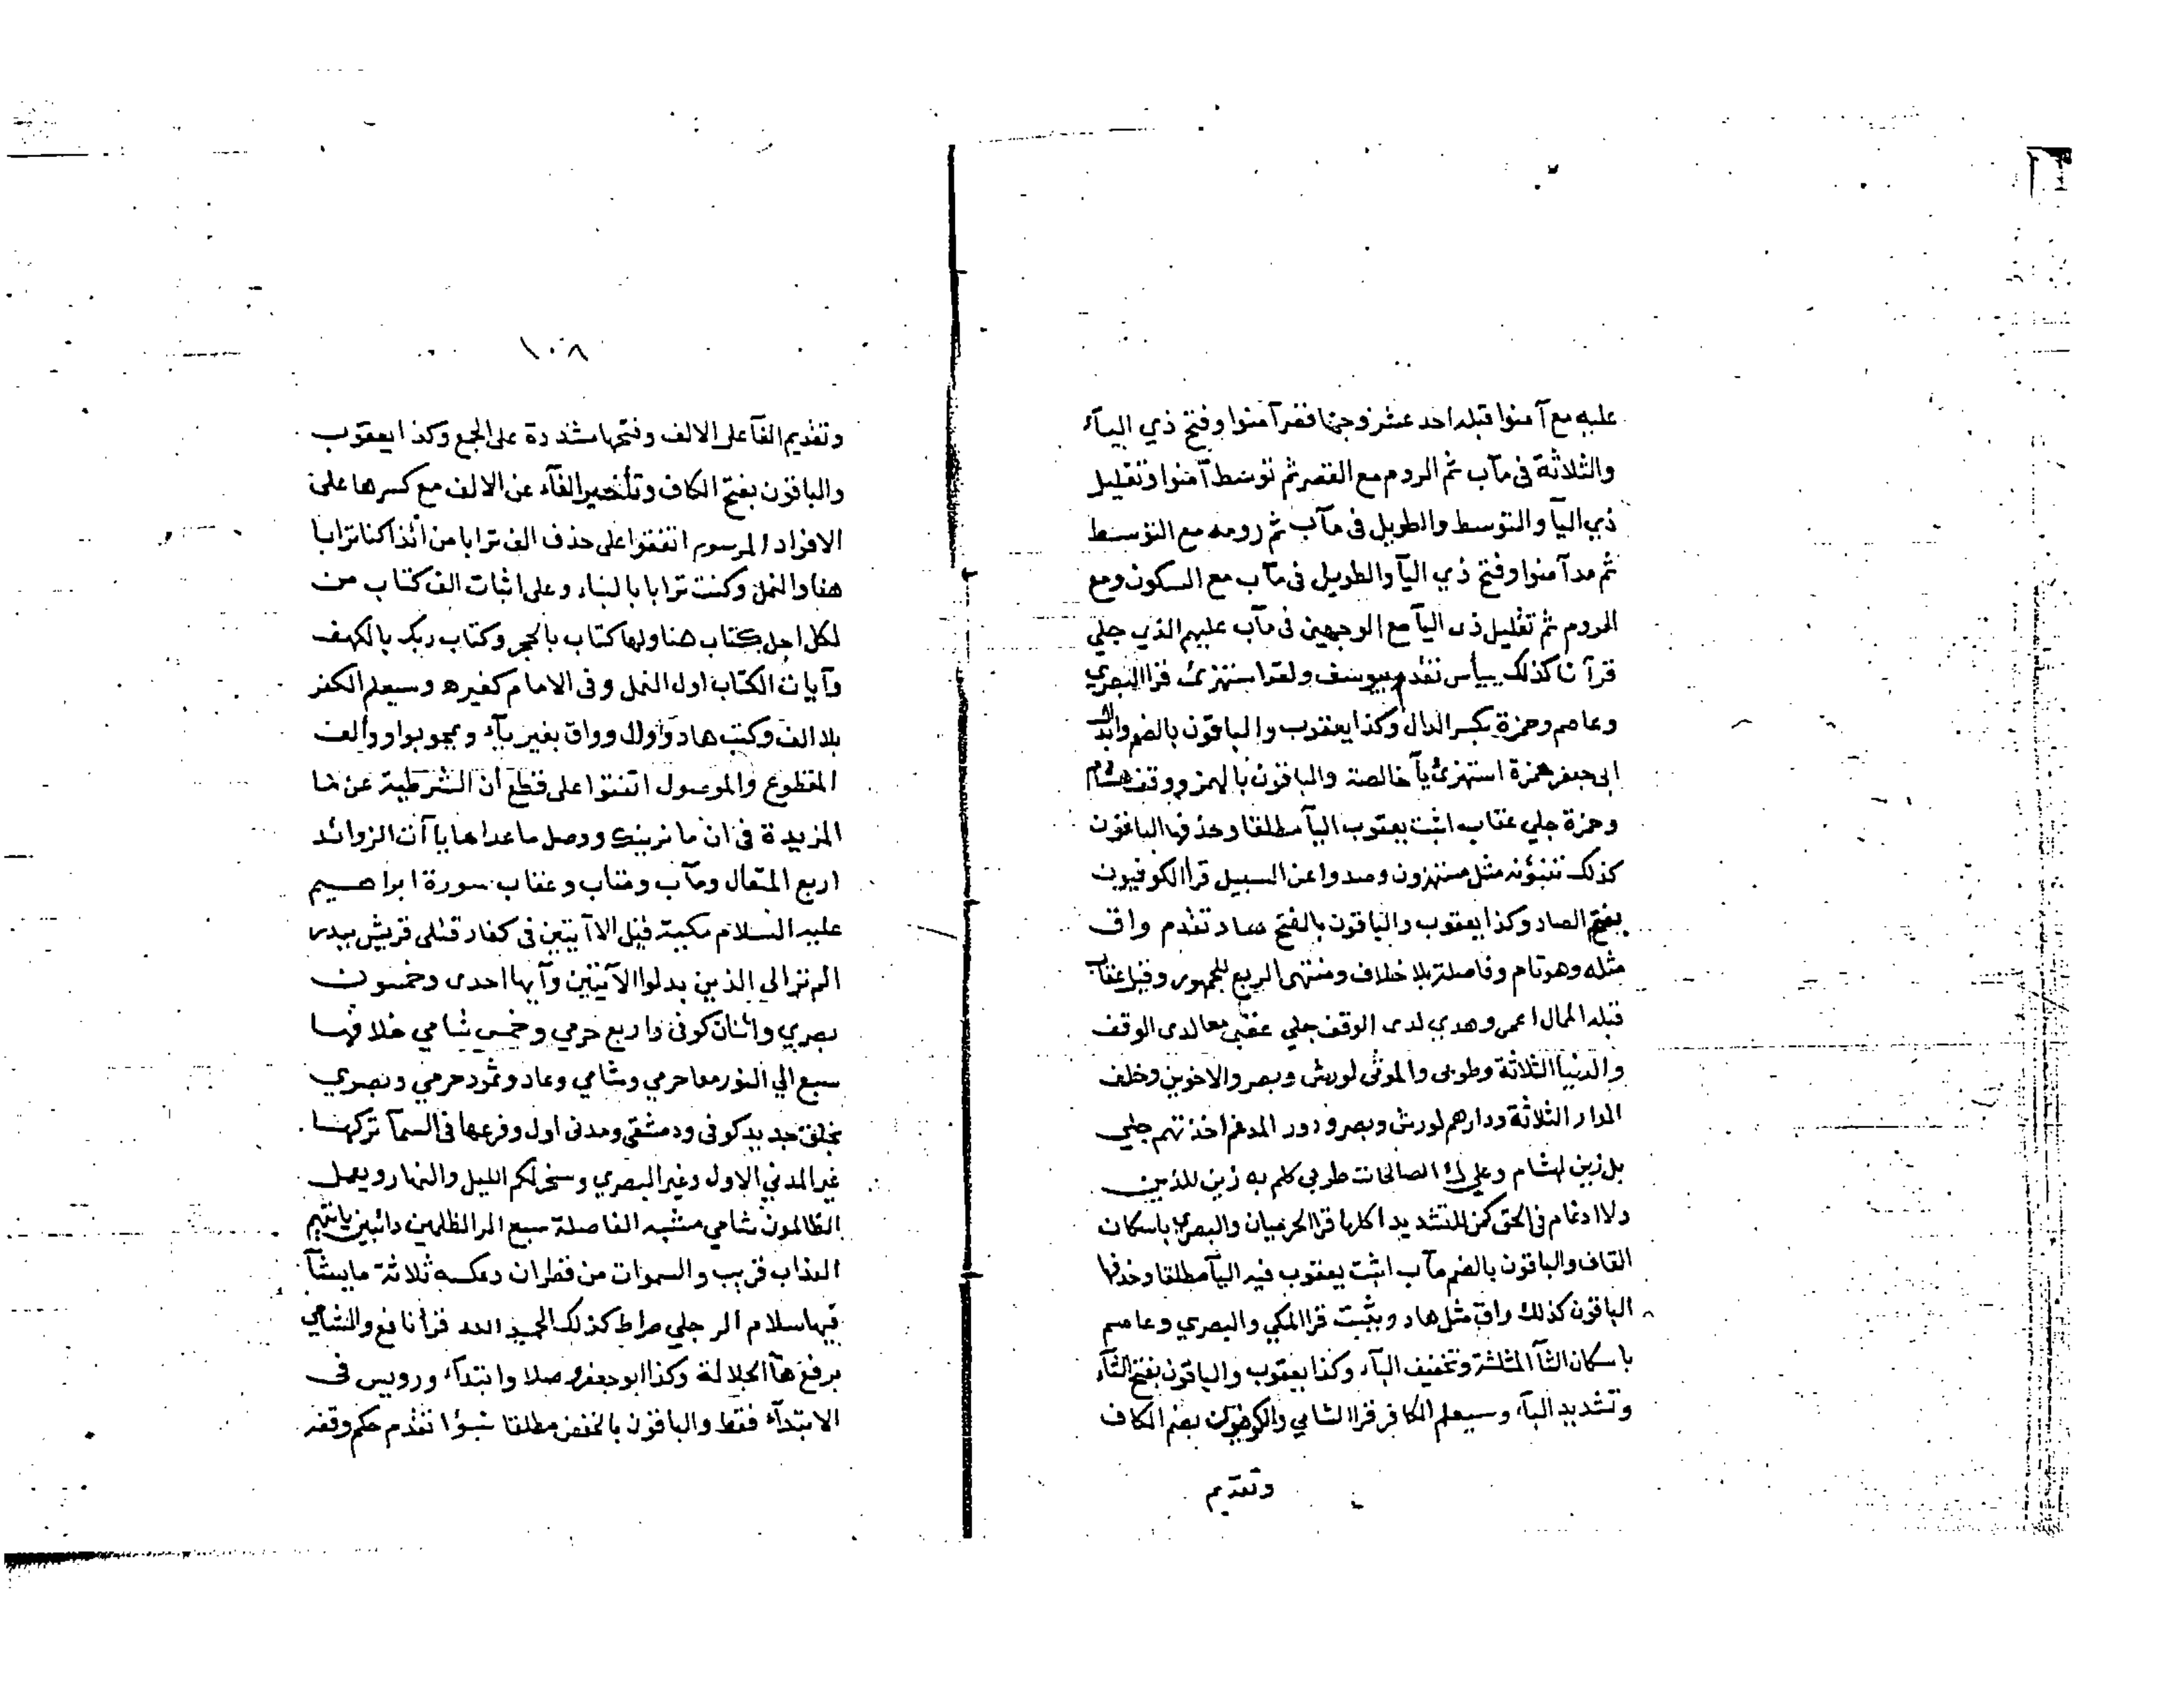 عليه مع آمنوا قبله احد عشر وجها فقصر آمنوا وفتح ذي اليآء
والثلاثة فى مآب ثم الروم مع القصر ثم توسط آمنوا وتقليل
ذي اليآ والتوسط والطويل فى مآب ثم رومه مع التوسط
ثم مد آمنوا وفتح ذي اليآ والطويل فى مآب مع السكون ومع
الروم ثم تقليل ذى اليآ مع الوجهين فى مآب عليهم الذي جلي
قرآنا كذلك ييأس تقدم بيوسف ولقد استهزئ قرا البصري
وعاصم وحمزة بكسر الدال وكذا يعقوب والباقون بالضم وابدل
ابى جعفر همزة استهزئ يآ خالصة والباقون بالهمز ووقف هشام
وحمزة جلي عقاب اثبت يعقوب اليآ مطلقا وحذفها الباقون
كذلك تنبؤنه مثل مستهزون وصدوا عن السبيل قرأ الكوفيون
بفتح الصاد وكذا يعقوب والباقون بالفتح هاد تقدم واق
مثله وهو تام وفاصلة بلا خلاف ومنتهى الربع للجمهور وقيل عقاب
قبله الممال اعمى وهدي لدى الوقف جلي عقبى معا لدى الوقف
والدنيا الثلاثة وطوبى والموتى لورش وبصر والاخوين وخلف
الدار الثلاثة ودارهم لورش وبصر ودور المدغم اخذتهم جلي
بل زين لهشام وعلي ك الصالحات طوبي كلم به زين للذين
ولا ادغام فى الحق كمن للتشديد اكلها قرا الحرميان والبصري باسكان
القاف والباقون بالضم مآب اثبت يعقوب فيه اليآ مطلقا وحذفها
الباقون كذلك واق مثل هاد ويثبت قرا المكي والبصري وعاصم
باسكان الثآ المثلثة وتخفيف البآء وكذا يعقوب والباقون بفتح الثآء
وتشديد البآء وسيعلم الكافر قرا الشامي والكوفيون بضم الكاف
وتقديم
١٠٨
وتقديم الفآ على الالف وفتحها مشددة على الجمع وكذا يعقوب
والباقون بفتح الكاف وتأخير الفآء عن الالف مع كسرها على
الافراد المرسوم اتفقوا على حذف الف ترابا من ائذا كنا ترابا
هنا والنمل وكنت ترابا بالنباء وعلى اثبات الف كتاب من
لكل اجل كتاب هنا ولها كتاب بالحجر وكتاب ربك بالكهف
وآيات الكتاب اول النمل وفى الامام كغيره وسيعلم الكفر
بلا الف وكتب هاد ووال وواق بغير يآء ويمحو بواو والف
المقطوع والموصول اتفقوا على قطع ان الشرطية عن ما
المزيدة فى ان ما نرينك ووصل ما عداها ياآت الزوائد
اربع المتعال ومآب ومتاب وعقاب سورة ابراهيم
عليه السلام مكية قيل الا آيتين فى كفار قتلى قريش ببدر
الم تر الى الذين بدلوا الآيتين وآيها احدى وخمسون
بصري واثنان كوفى واربع حرمي وخمس شامي خلافها
سبع الي النور معا حرمي وشامي وعاد وثمود حرمي وبصري
بخلق جديد كوفى ودمشقي ومدنى اول وفرعها فى السمآ تركها
غير المدني الاول وغير البصري وسخر لكم الليل والنهار ويعمل
الظالمون شامي مشبه الفاصلة سبع الر الظلمين دائبين ياتيهم
العذاب قريب والسموات من قطران وعكسه ثلاثة ما يشآ
فيها سلام الر جلي صراط كذلك الحميد الله قرأ نافع والشامي
برفع هآ الجلالة وكذا ابو جعفر وصلا وابتدآء ورويس فى
الابتدآء فقط والباقون بالخفض مطلقا نبؤا تقدم حكم وقفه